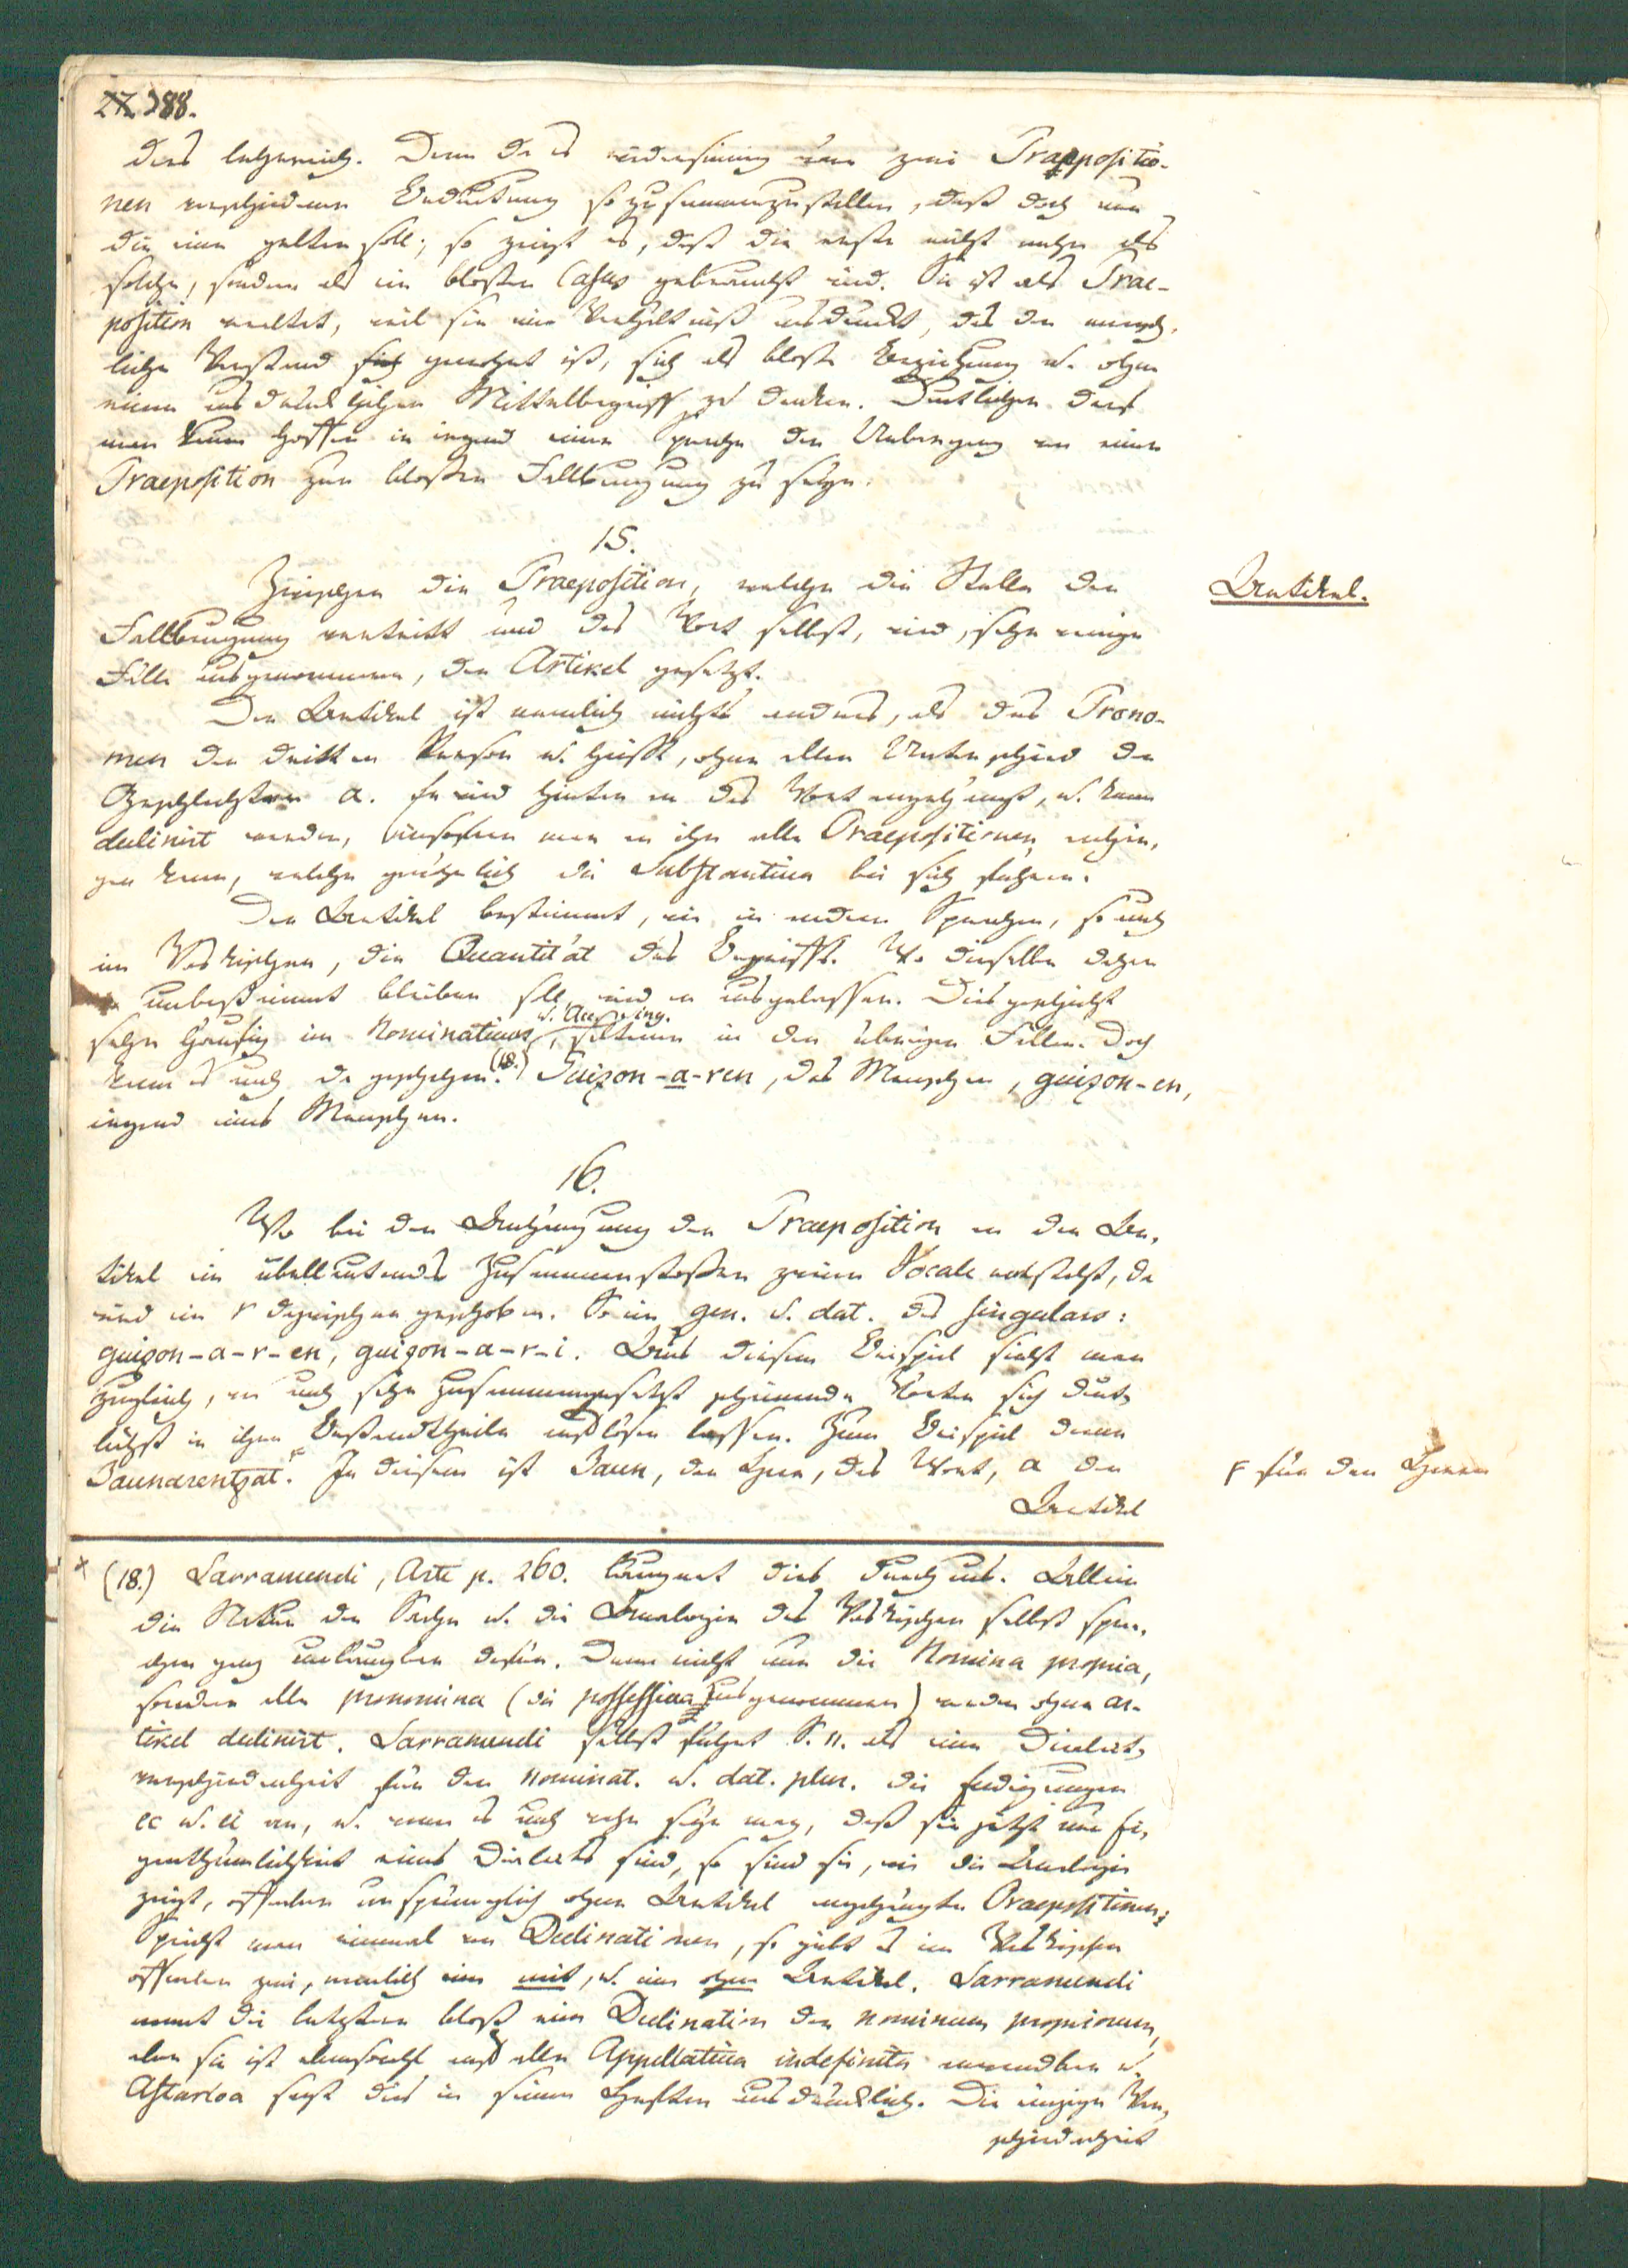 22. 388.
dies lehrreich. Denn da es widersinnig wäre zwei Praepositio-
nen verschiedener Bedeutung so zusammenzustellen, daß doch nur
die eine gelten soll; so zeigt es, daß die erste nicht mehr als
solche, sondern als ein bloßer Casus gebraucht wird. Sie ist als Prae-
position veraltet, weil sie ein Verhältniß ausdruckt, das der mensch-
liche Verstand sich gewohnt ist, sich als bloße Beziehung u. ohne
einen ausdrücklichen Mittelbegriff zu denken. Deutlicher darf
man kaum hoffen in irgend einer Sprache den Uebergang von einer
Praeposition zur bloßen Fallbeugung zu sehen.
15.
Zwischen die Praeposition, welche die Stelle der
Artikel.
Fallbeugung vertritt und das Wort selbst, wird, sehr wenige
Fälle ausgenommen, der Artikel gesetzt.
Der Artikel ist nemlich nichts anders, als das Prono-
men der dritten Person u. heißt, ohne allen Unterschied der
Geschlechter a. Er wird hinten an das Wort angehängt, u. kann
declinirt werden, insofern man an ihn alle Praepositionen anhän-
gen kann, welche gewöhnlich die Substantiva bei sich führen.
Der Artikel bestimmt, wie in andern Sprachen, so auch
im Vaskischen, die Quantität des Begriffs. Wo dieselbe daher
unbestimmt bleiben soll, wird er ausgelassen. Dies geschieht
u. Accusing.
sehr häufig im Nominativus, seltener in den übrigen Fällen. Doch
kann es auch da geschehen. (18.) Guizon-a-ren, des Menschen, guizon-en,
irgend eines Menschen.
16.
Wo bei der Anhängung der Praeposition an den Ar-
tikel ein übellautendes Zusammenstoßen zweier Vocale entsteht, da
wird ein r dazwischen geschoben. So im gen. u. dat. des singulars:
guizon-a-r-en, guizon-a-r-i. Aus diesem Beispiel sieht man
zugleich, wie auch sehr zusammengesetzt scheinende Wörter sich deut-
lichst in ihre Bestandtheile auflösen lassen. Zum Beispiel diene
Jaunarentzat. F In diesem ist Jaun, der Herr, das Wort, a der
F für den Herrn
Artikel
(18.) Larramendi, Arte p. 260. läugnet dies durchaus. Allein
die Natur der Sache u. die Analogie des Vaskischen selbst spre-
chen ganz unläugbar dafür. Denn nicht nur die Nomina propria,
sondern alle pronomina (die possessiva ausgenommen) werden ohne ar-
tikel declinirt. Larramendi selbst führt S. 11. als eine Dialect-
verschiedenheit für den nominat. u. dat. plur. die Endigungen
ec u. ei an, u. wenn es auch wahr sein mag, daß sie jetzt nur Ei-
genthümlichkeit eines Dialects sind, so sind sie, wie die Analogie
zeigt, offenbar ursprünglich ohne Artikel angehängte Praepositionen.
Spricht man einmal von Declinationen, so giebt es im Vaskischen
offenbar zwei, nemlich eine mit, u. eine ohne Artikel. Larramendi
nennt die letztere bloß eine Declination der nominum propriorum,
aber sie ist ebensowohl auf alle Appellativa indefinita anwendbar u.
Astarloa sagt dies in seinen Heften ausdrücklich. Die einzige Ver-
schiedenheit